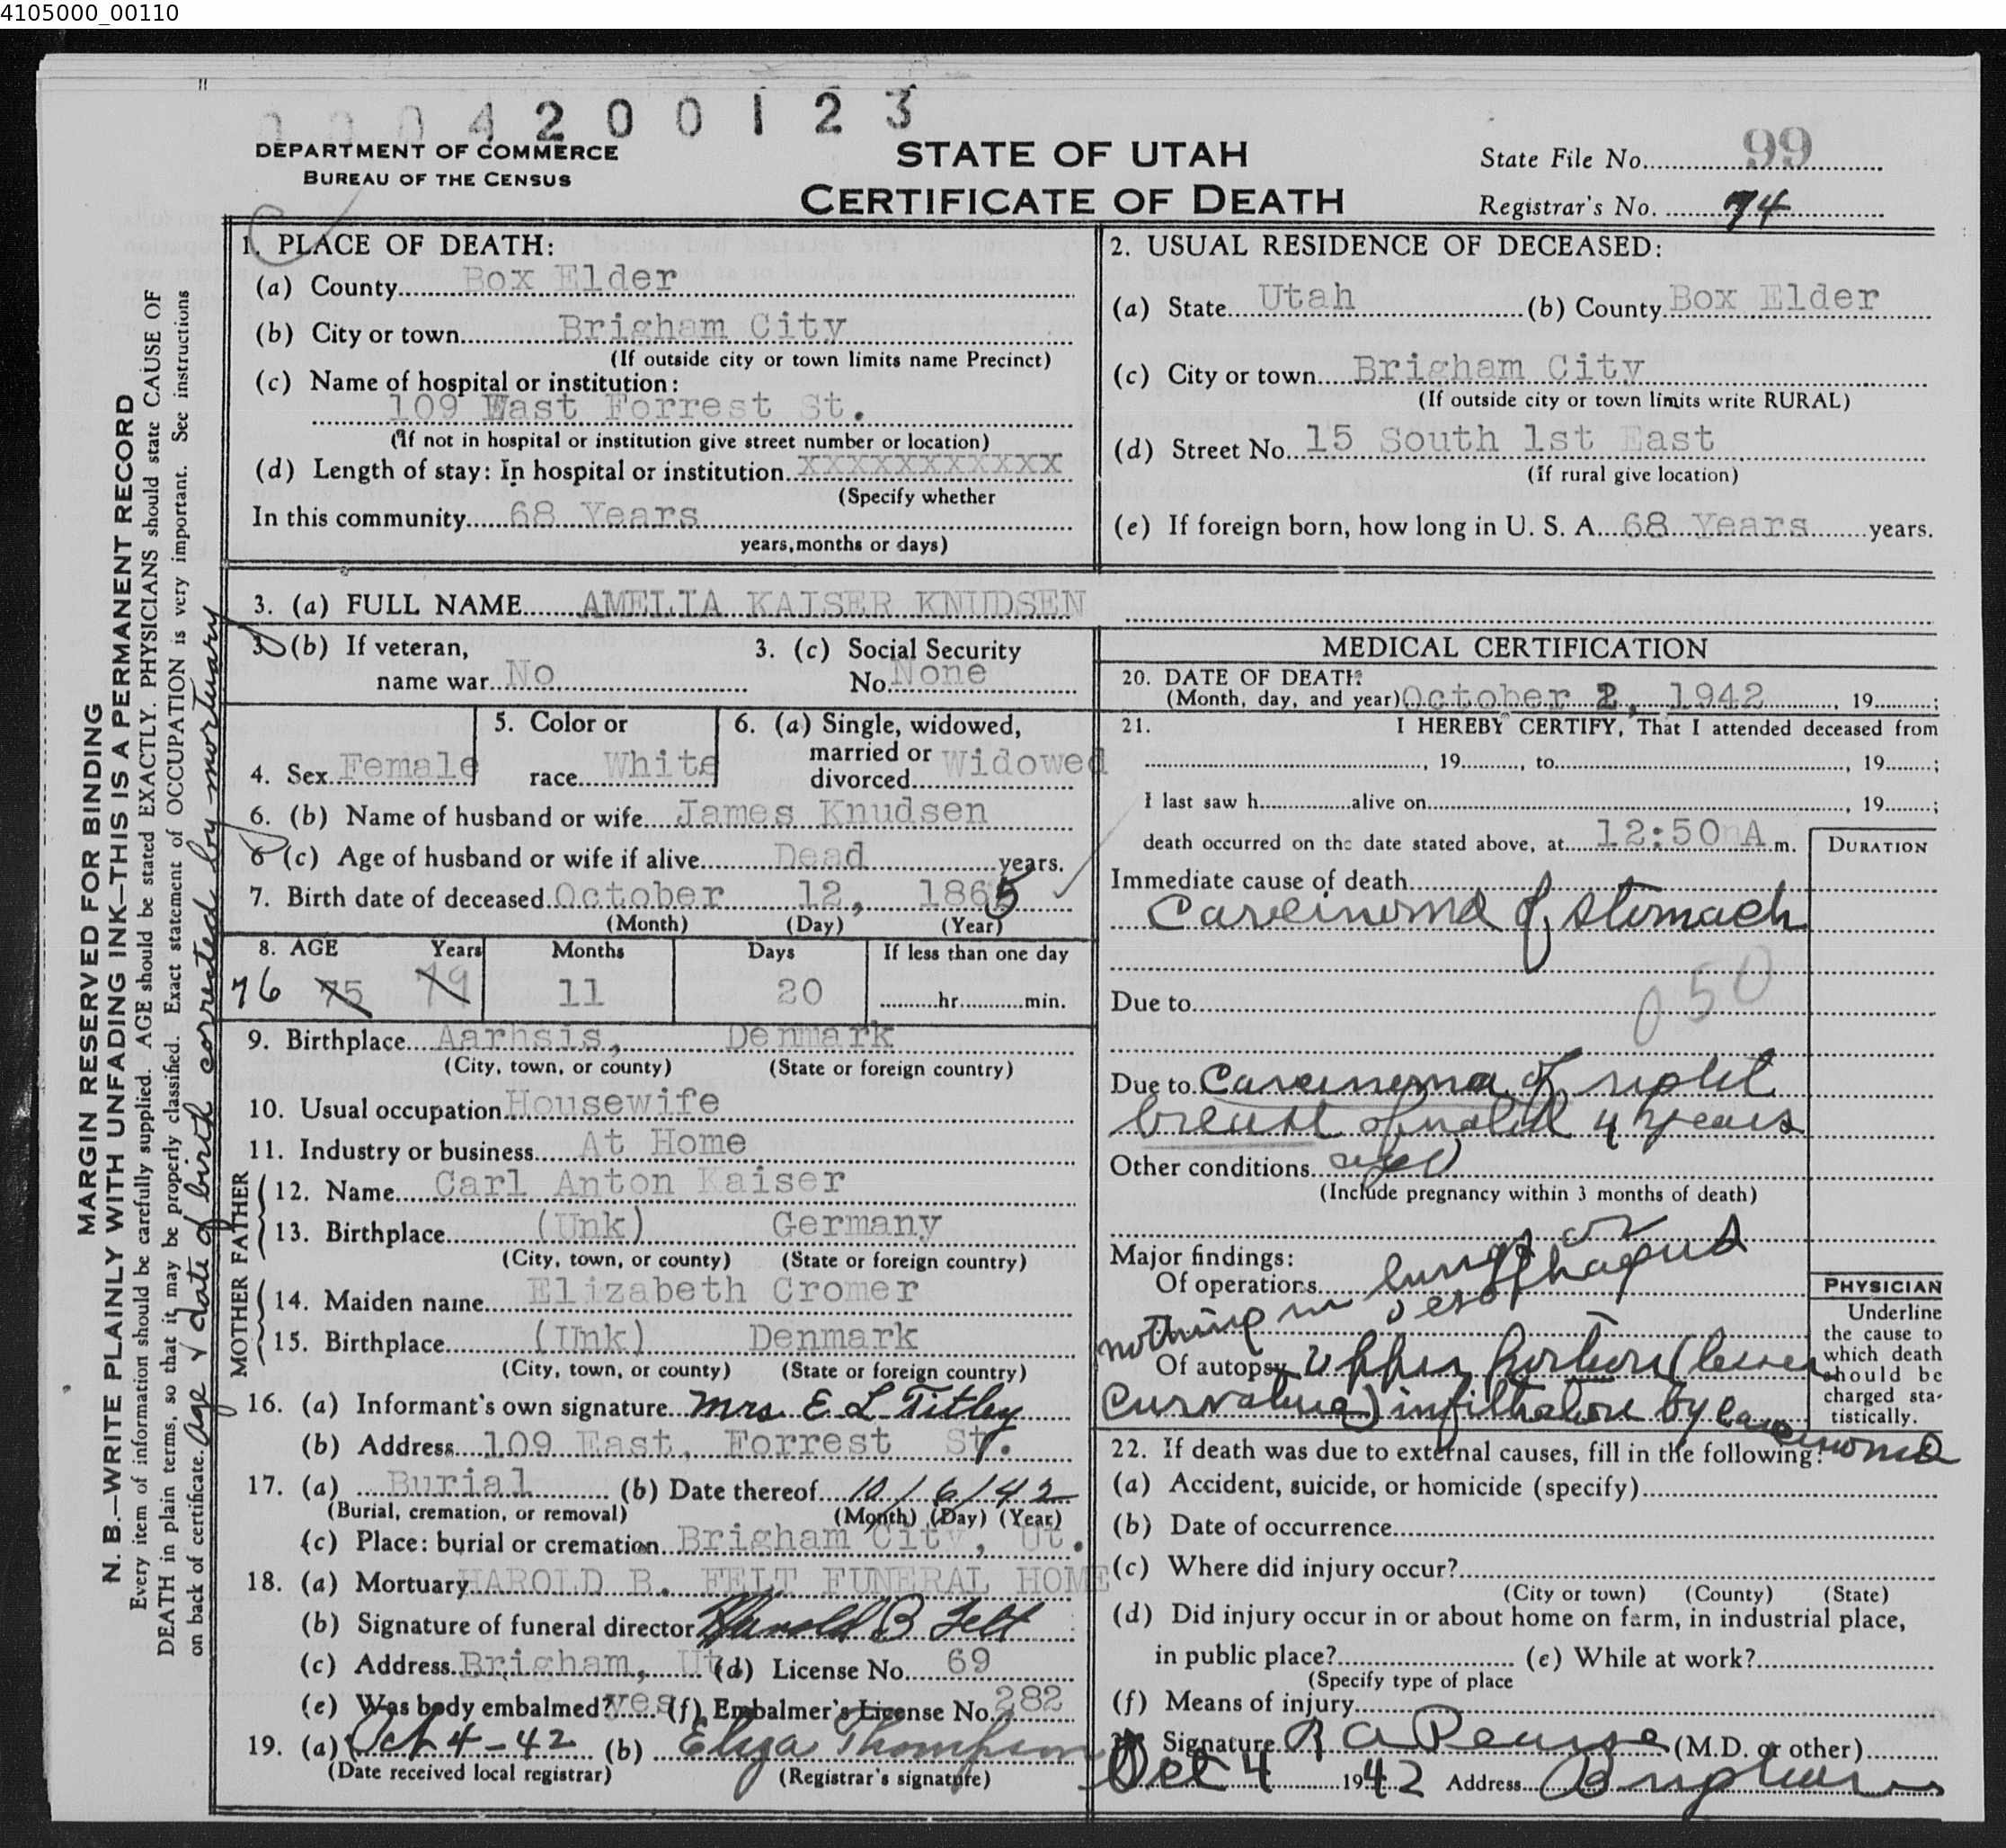 4105000_00110
0004200123
DEPARTMENT OF COMMERCE
BUREAU OF THE CENSUS
STATE OF UTAH
CERTIFICATE OF DEATH
State File No. 99
Registrar's No. 74
MARGIN RESERVED FOR BINDING
N. B.—WRITE PLAINLY WITH UNFADING INK—THIS IS A PERMANENT RECORD
Every item of information should be carefully supplied. AGE should be stated EXACTLY. PHYSICIANS should state CAUSE OF
DEATH in plain terms, so that it may be properly classified. Exact statement of OCCUPATION is very important. See instructions
on back of certificate. Age & date of birth corrected by mortuary
1. PLACE OF DEATH:
(a) County Box Elder
(b) City or town Brigham City
(If outside city or town limits name Precinct)
(c) Name of hospital or institution:
109 East Forrest St.
(If not in hospital or institution give street number or location)
(d) Length of stay: In hospital or institution XXXXXXXXXXX
(Specify whether
In this community 68 Years
years, months or days)
2. USUAL RESIDENCE OF DECEASED:
(a) State Utah (b) County Box Elder
(c) City or town Brigham City
(If outside city or town limits write RURAL)
(d) Street No. 15 South 1st East
(if rural give location)
(e) If foreign born, how long in U. S. A. 68 Years years.
3. (a) FULL NAME AMELIA KAISER KNUDSEN
3. (b) If veteran,
name war No
3. (c) Social Security
No. None
4. Sex Female
5. Color or
race White
6. (a) Single, widowed,
married or
divorced Widowed
6. (b) Name of husband or wife James Knudsen
6 (c) Age of husband or wife if alive Dead years.
7. Birth date of deceased October 12, 1865
(Month) (Day) (Year)
8. AGE Years Months Days If less than one day
76 75 79 11 20 hr. min.
9. Birthplace Aarhsis, Denmark
(City, town, or county) (State or foreign country)
10. Usual occupation Housewife
11. Industry or business At Home
FATHER
12. Name Carl Anton Kaiser
13. Birthplace (Unk) Germany
(City, town, or county) (State or foreign country)
MOTHER
14. Maiden name Elizabeth Cromer
15. Birthplace (Unk) Denmark
(City, town, or county) (State or foreign country)
16. (a) Informant's own signature Mrs E L Titley
(b) Address 109 East, Forrest St.
17. (a) Burial (b) Date thereof 10/6/42
(Burial, cremation, or removal) (Month) (Day) (Year)
(c) Place: burial or cremation Brigham City, Ut.
18. (a) Mortuary HAROLD B. FELT FUNERAL HOME
(b) Signature of funeral director Harold B Felt
(c) Address Brigham, Ut (d) License No. 69
(e) Was body embalmed? yes (f) Embalmer's License No. 282
19. (a) Oct 4-42 (b) Eliza Thompson
(Date received local registrar) (Registrar's signature)
MEDICAL CERTIFICATION
20. DATE OF DEATH:
(Month, day, and year) October 2, 1942, 19 ;
21. I HEREBY CERTIFY, That I attended deceased from
, 19 , to , 19 ;
I last saw h alive on , 19 ;
death occurred on the date stated above, at 12:50 A m.
DURATION
Immediate cause of death
Carcinoma of stomach
Due to
050
Due to Carcinoma of right
breast operated 4 years
Other conditions ago
(Include pregnancy within 3 months of death)
Major findings:
Of operations
nothing in lungs or
oesophagus
Of autopsy upper portion (lesser
curvature) infiltration by carcinoma
PHYSICIAN
Underline
the cause to
which death
should be
charged sta-
tistically.
22. If death was due to external causes, fill in the following:
(a) Accident, suicide, or homicide (specify)
(b) Date of occurrence
(c) Where did injury occur?
(City or town) (County) (State)
(d) Did injury occur in or about home on farm, in industrial place,
in public place? (e) While at work?
(Specify type of place
(f) Means of injury
Signature R A Pearse (M.D. or other)
Oct 4 1942 Address Brigham